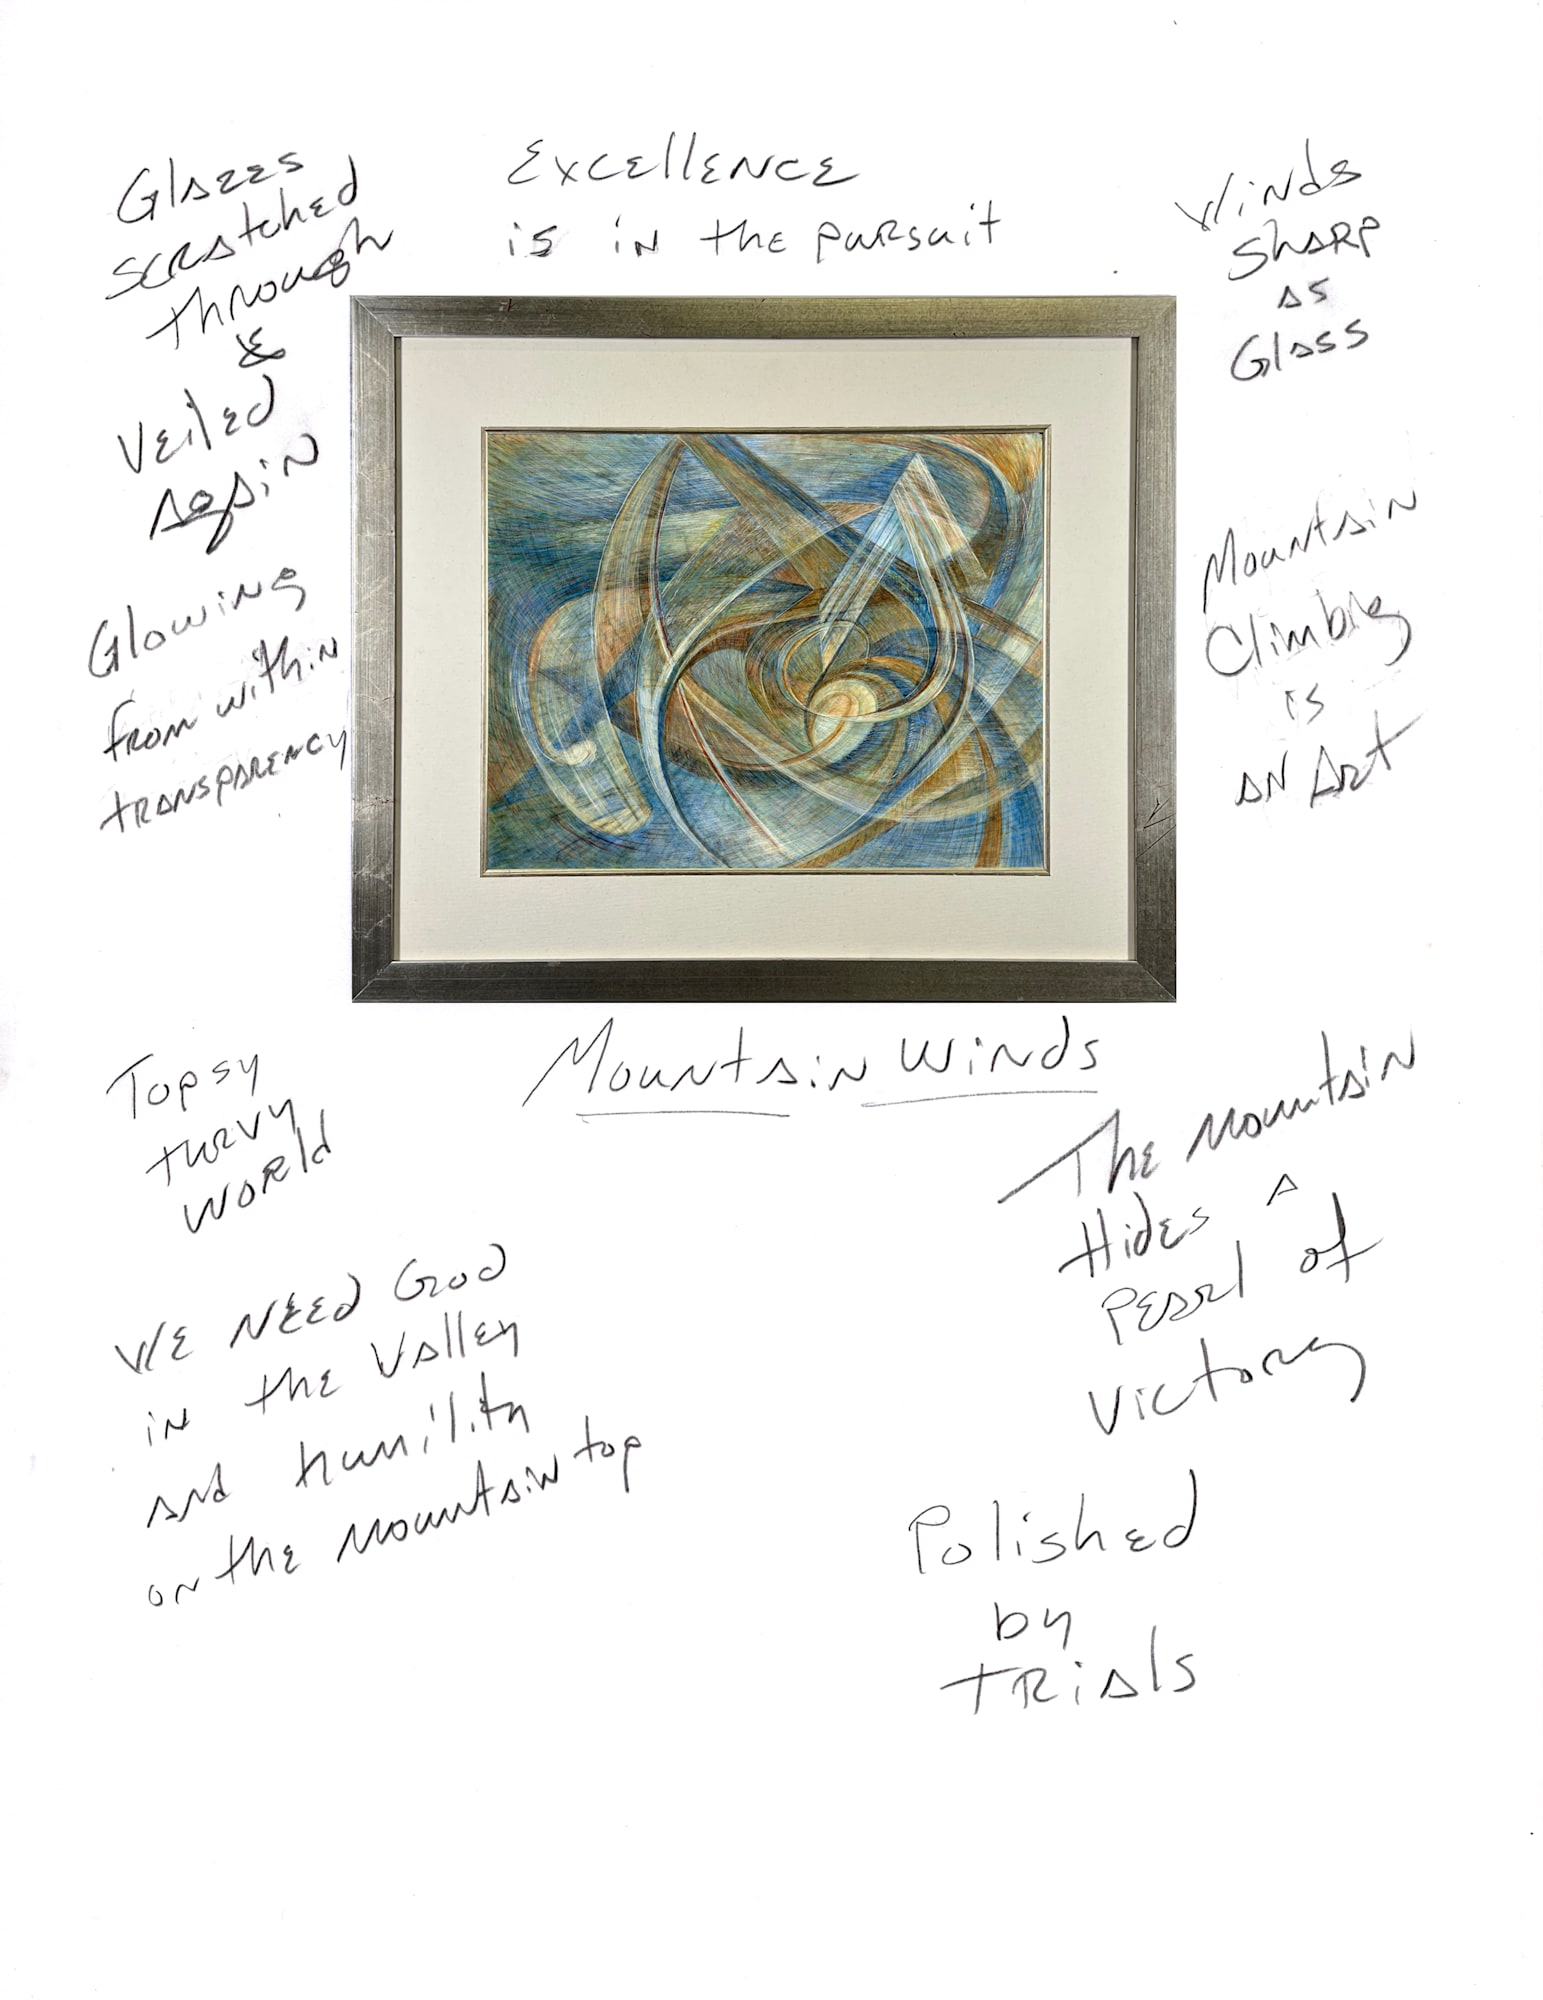 Glazes
scratched
through
&
Veiled
again
Glowing
from within
transparency
Excellence
is in the pursuit
Winds
sharp
as
Glass
Mountain
Climbing
is
an Art
Mountain Winds
Topsy
turvy
world
We need God
in the Valley
and humility
on the mountain top
The mountain
Hides a
Pearl of
Victory
Polished
by
trials